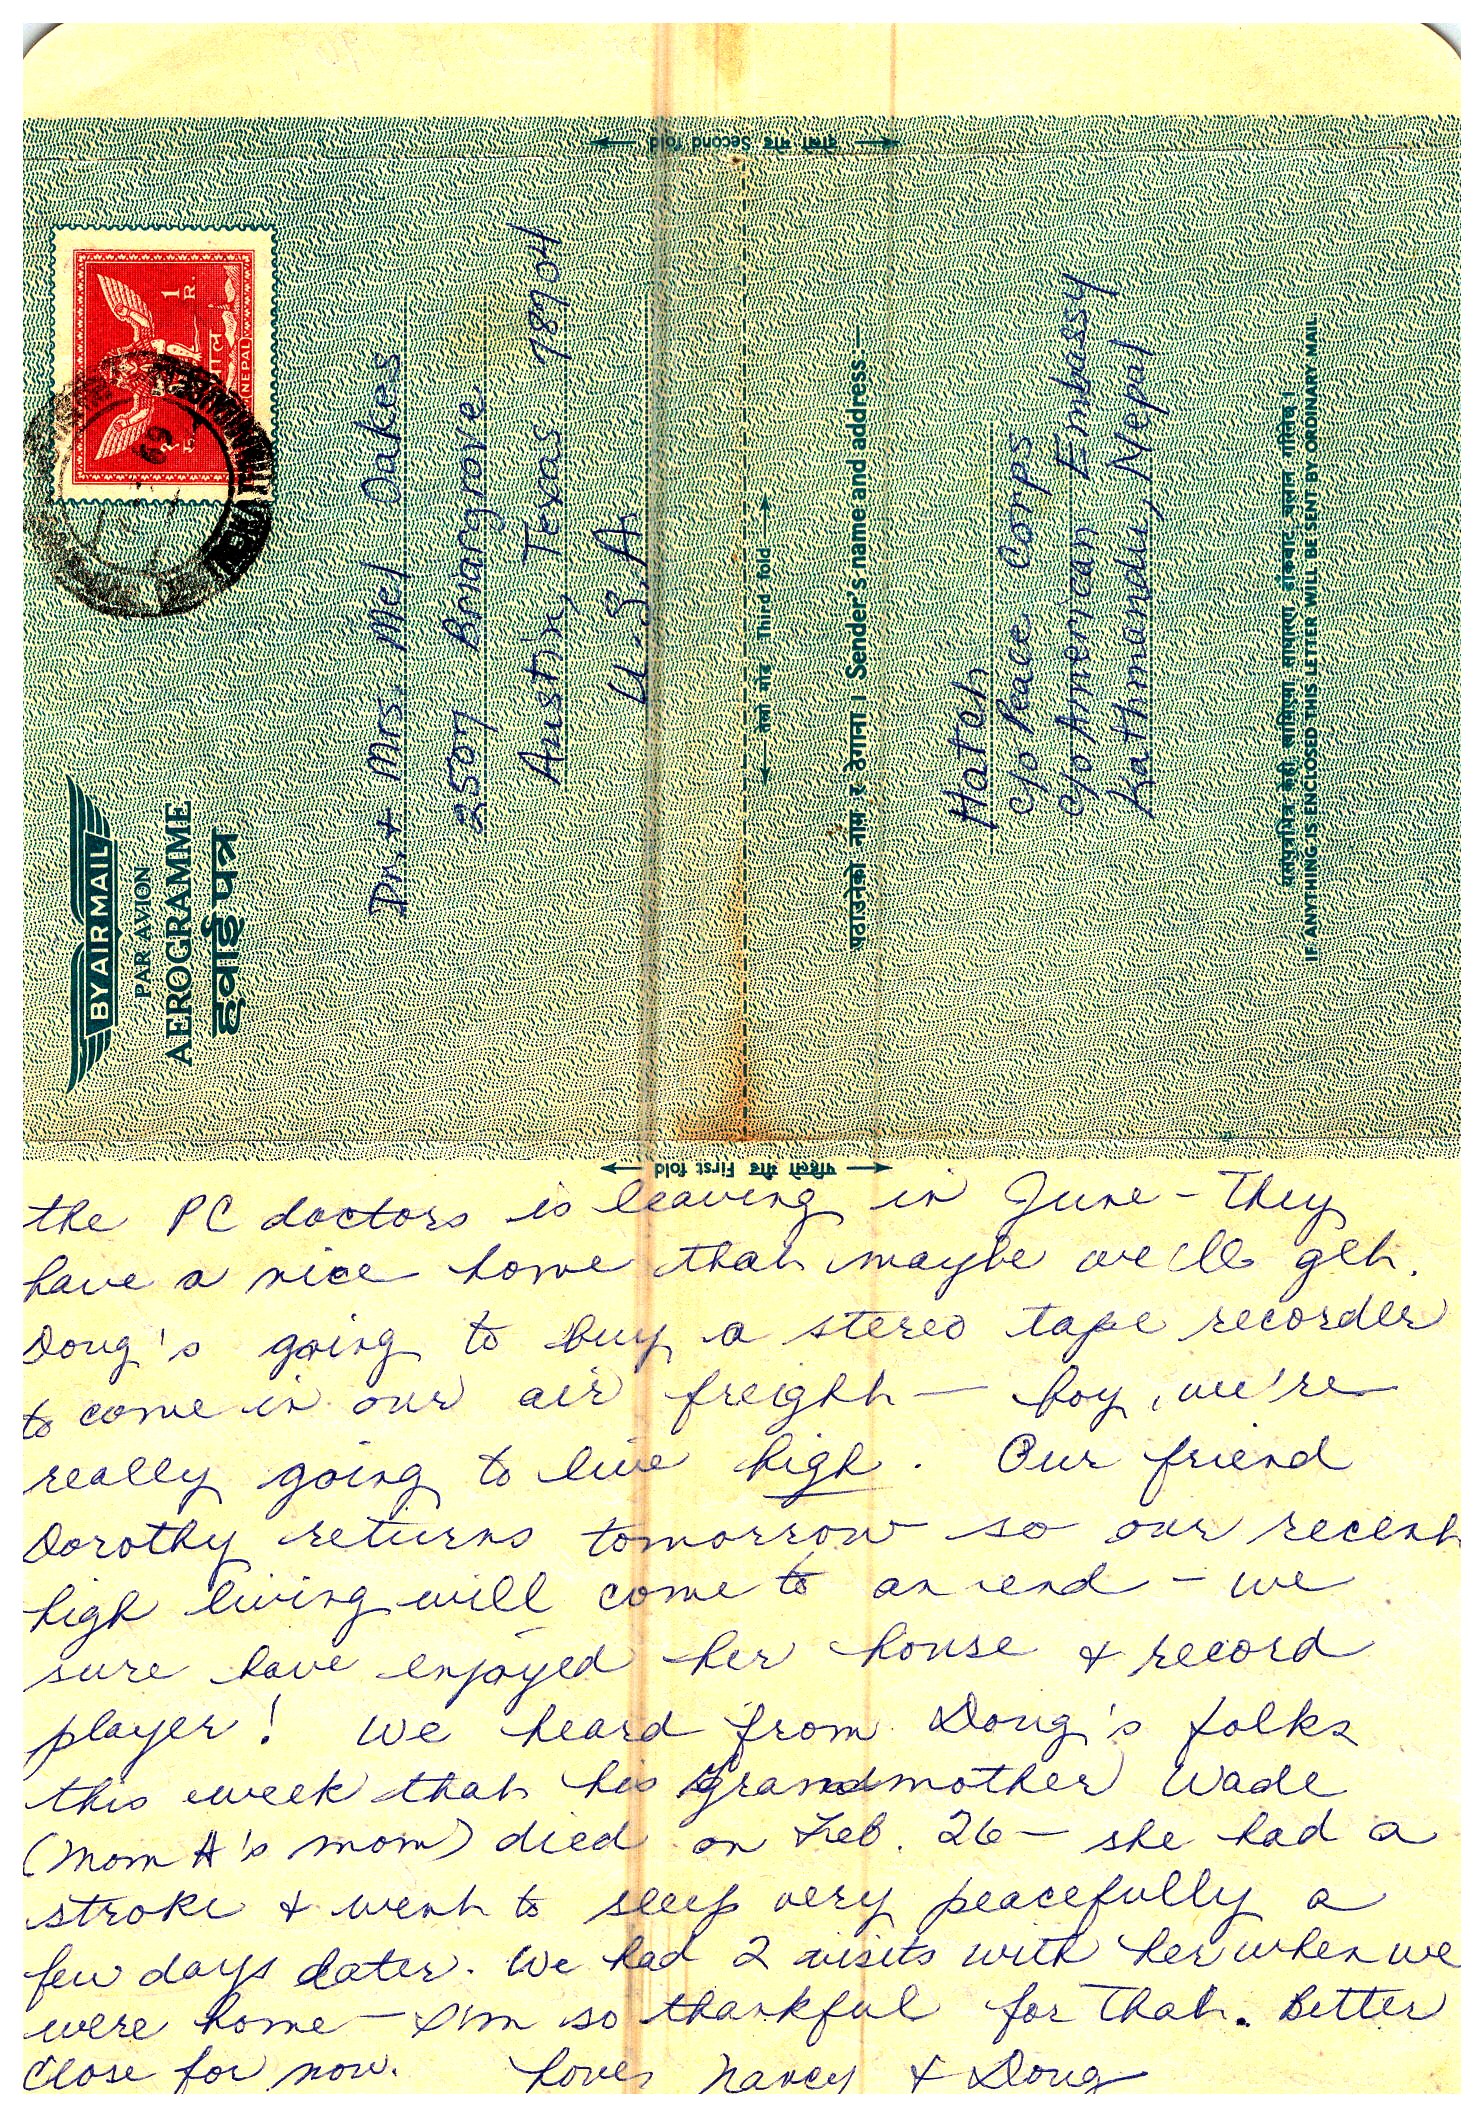 दोस्रो मोड Second fold
1 R.
नेपाल
(NEPAL)
69
BY AIR MAIL
PAR AVION
AEROGRAMME
हवाई पत्र
Dr. + Mrs. Mel Oakes
2507 Briargrove
Austin, Texas 78704
U.S.A.
तेस्रो मोड Third fold
पठाउनेको नाम र ठेगाना । Sender's name and address
Hatch
c/o Peace Corps
c/o American Embassy
Kathmandu, Nepal
यसपत्रभित्र केही राखिएमा साधारण डाँकबाट चलान गरिनेछ ।
IF ANYTHING IS ENCLOSED THIS LETTER WILL BE SENT BY ORDINARY MAIL
पहिलो मोड First fold
the PC doctors is leaving in June - They
have a nice home that maybe we'll get.
Doug's going to buy a stereo tape recorder
to come in our air freight — boy, we're
really going to live high. Our friend
Dorothy returns tomorrow so our recent
high living will come to an end - we
sure have enjoyed her house & record
player! We heard from Doug's folks
this week that his Grandmother Wade
(Mom H's mom) died on Feb. 26 — she had a
stroke & went to sleep very peacefully a
few days later. We had 2 visits with her when we
were home — I'm so thankful for that. Better
close for now. Love, Nancy & Doug